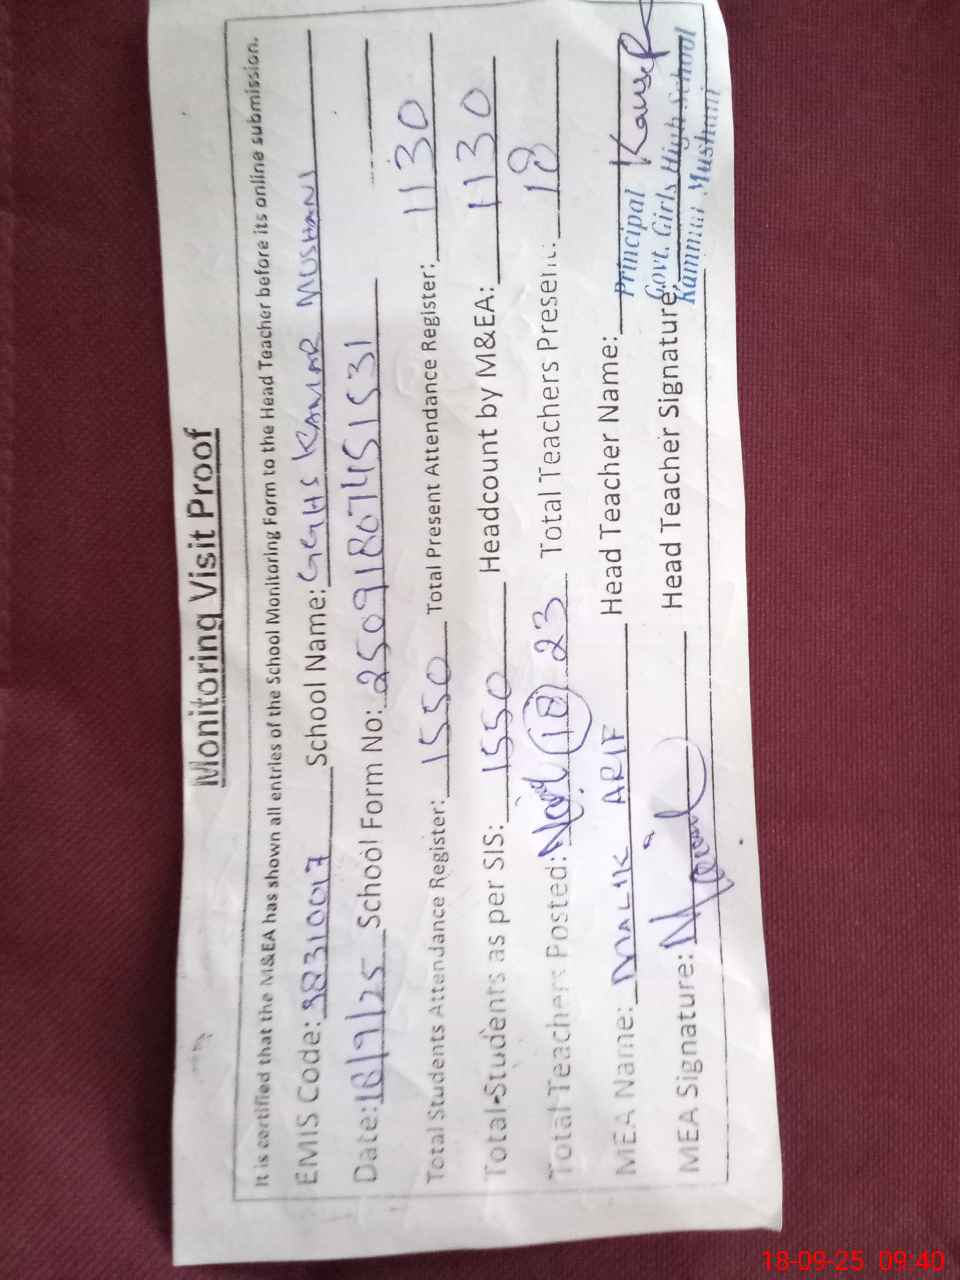 Monitoring Visit Proof
It is certified that the M&EA has shown all entries of the School Monitoring Form to the Head Teacher before its online submission.
EMIS Code: 38310017 School Name: GGHS KAMAR MUSHANI
Date: 18/9/25 School Form No: 2509180745 1531
Total Students Attendance Register: 1550 Total Present Attendance Register: 1130
Total Students as per SIS: 1550 Headcount by M&EA: 1130
Total Teachers Posted: 18 23 Total Teachers Present: 18
MEA Name: MALIK ARIF Head Teacher Name: Kausar
MEA Signature: Head Teacher Signature:
Principal
Govt. Girls High School
Kammar Mushani
18-09-25 09:40